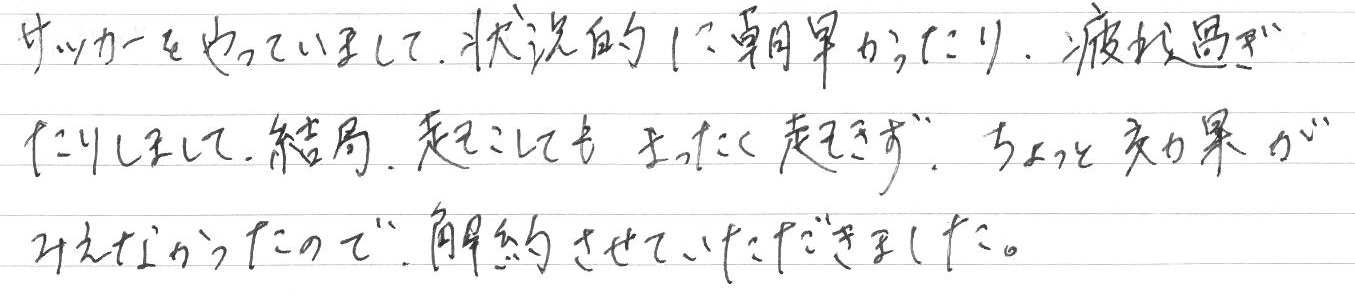 サッカーをやっていまして、状況的に朝早かったり、疲れ過ぎ
たりしまして、結局、起こしてもまったく起きず、ちょっと効果が
みえなかったので、解約させていただきました。